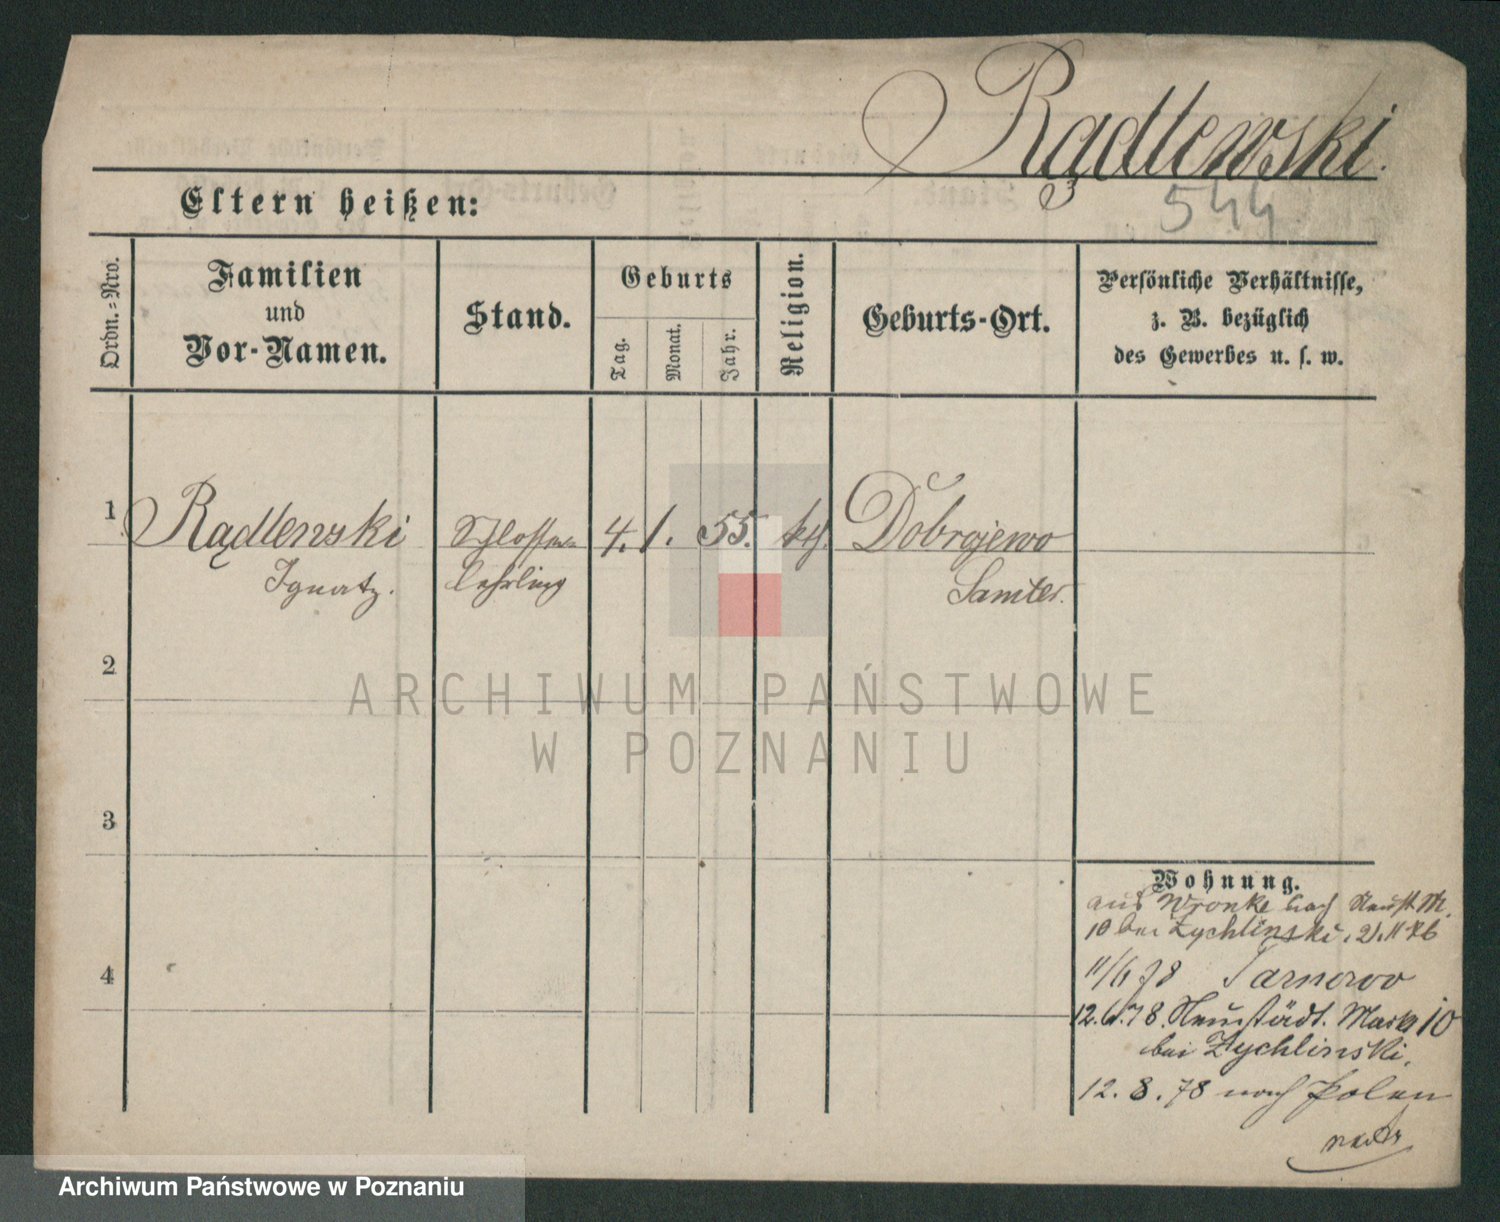 Rądlewski.
544
Eltern heißen:
Ordn.=Nro.
Familien
und
Vor-Namen.
Stand.
Geburts
Tag.
Monat.
Jahr.
Religion.
Geburts-Ort.
Persönliche Verhältnisse,
z. B. bezüglich
des Gewerbes u. s. w.
1 Rądlewski Schlosser= 4. 1. 55. kth. Dobrojewo
Ignatz. lehrling Samter.
2
ARCHIWUM PAŃSTWOWE
W POZNANIU
3
Wohnung.
aus Wronke nach Neust. M.
10 bei Zychlinski. 21.11.76
4
11/6 78 Tarnowo
12.6.78. Neustädt. Markt 10
bei Zychlinski.
12.8.78 nach Polen
Archiwum Państwowe w Poznaniu